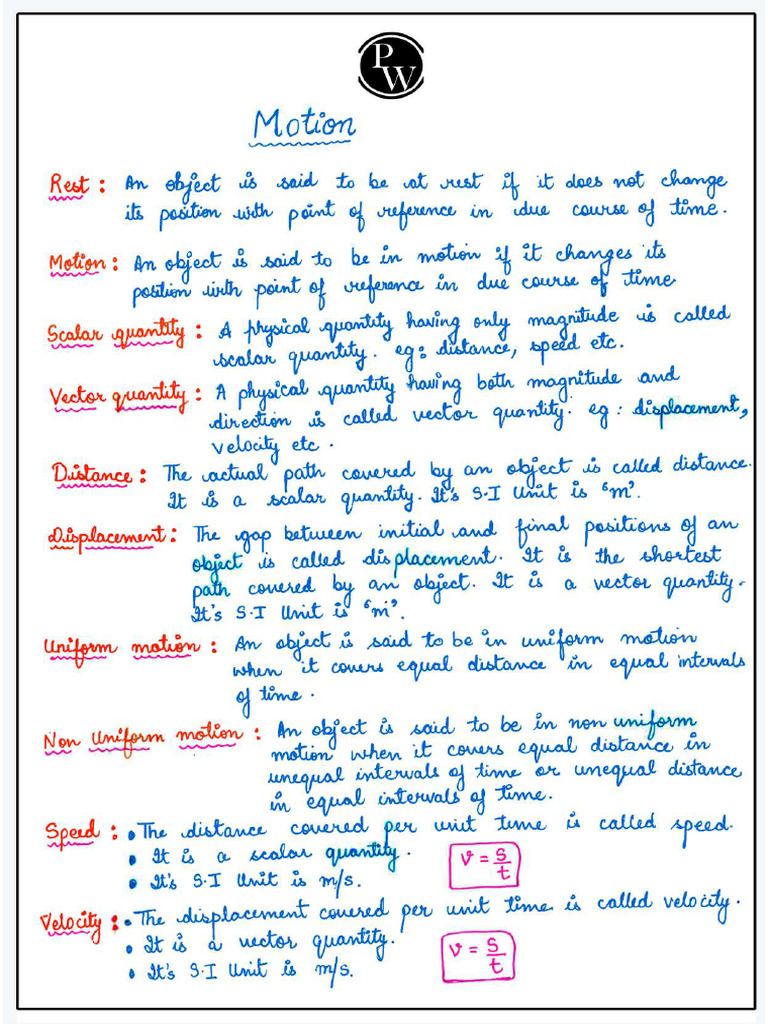 PW
Motion
Rest : An object is said to be at rest if it does not change
its position with point of reference in due course of time.
Motion : An object is said to be in motion if it changes its
position with point of reference in due course of time
Scalar quantity : A physical quantity having only magnitude is called
scalar quantity. eg: distance, speed etc.
Vector quantity : A physical quantity having both magnitude and
direction is called vector quantity. eg : displacement,
velocity etc.
Distance : The actual path covered by an object is called distance.
It is a scalar quantity. It's S.I Unit is 'm'.
Displacement : The gap between initial and final positions of an
object is called displacement. It is the shortest
path covered by an object. It is a vector quantity.
It's S.I Unit is 'm'.
Uniform motion : An object is said to be in uniform motion
when it covers equal distance in equal intervals
of time.
Non Uniform motion : An object is said to be in non uniform
motion when it covers equal distance in
unequal intervals of time or unequal distance
in equal intervals of time.
Speed : • The distance covered per unit time is called speed.
• It is a scalar quantity.
• It's S.I Unit is m/s. v = s/t
Velocity : • The displacement covered per unit time is called velocity.
• It is a vector quantity.
• It's S.I Unit is m/s. v = s/t